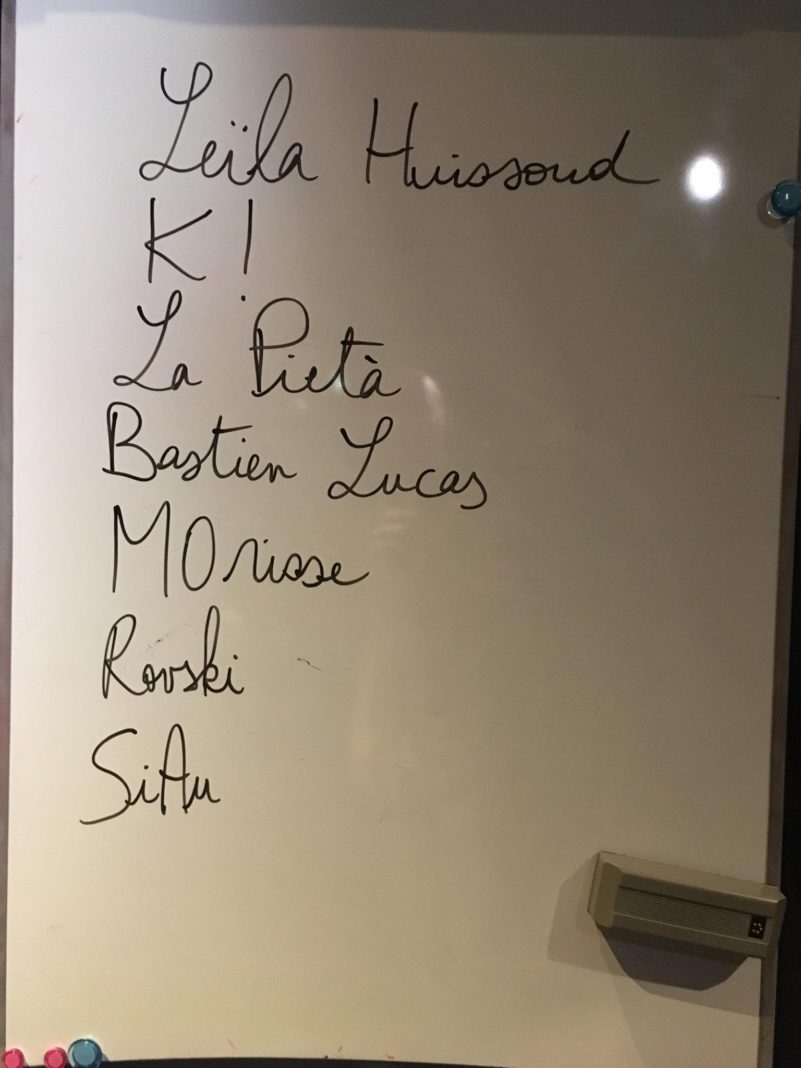 Leïla Huissoud
K!
La Pietà
Bastien Lucas
MOrisse
Rovski
SiAu